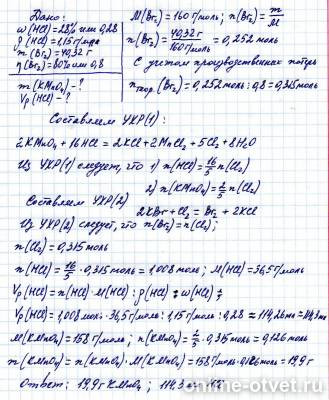 Дано:
ω(HCl)=28% или 0,28
ρ(HCl)=1,15 г/мл
m(Br₂)=40,32 г
η(Br₂)=80% или 0,8
m(KMnO₄)-?
Vр(HCl)=?
M(Br₂)=160 г/моль; n(Br₂)=m/M
n(Br₂)=40,32 г/160 г/моль=0,252 моль
С учетом производственных потерь
nтеор.(Br₂)=0,252 моль:0,8=0,315 моль
Составляем УХР(1):
2KMnO₄+16HCl=2KCl+2MnCl₂+5Cl₂+8H₂O
Из УХР(1) следует, что 1) n(HCl)=16/5 n(Cl₂)
2) n(KMnO₄)=2/5 n(Cl₂)
Составляем УХР(2)
2KBr+Cl₂=Br₂+2KCl
Из УХР(2) следует, что n(Br₂)=n(Cl₂);
n(Cl₂)=0,315 моль
n(HCl)=16/5·0,315 моль=1,008 моль; M(HCl)=36,5 г/моль
Vр(HCl)=n(HCl)·M(HCl):ρ(HCl):ω(HCl);
Vр(HCl)=1,008 моль·36,5 г/моль:1,15 г/моль:0,28=114,26 мл≈114,3 мл
M(KMnO₄)=158 г/моль; n(KMnO₄)=2/5·0,315 моль=0,126 моль
m(KMnO₄)=n(KMnO₄)·M(KMnO₄)=158 г/моль·0,126 моль=19,9 г
Ответ: 19,9 г KMnO₄; 114,3 мл HCl
online-otvet.ru